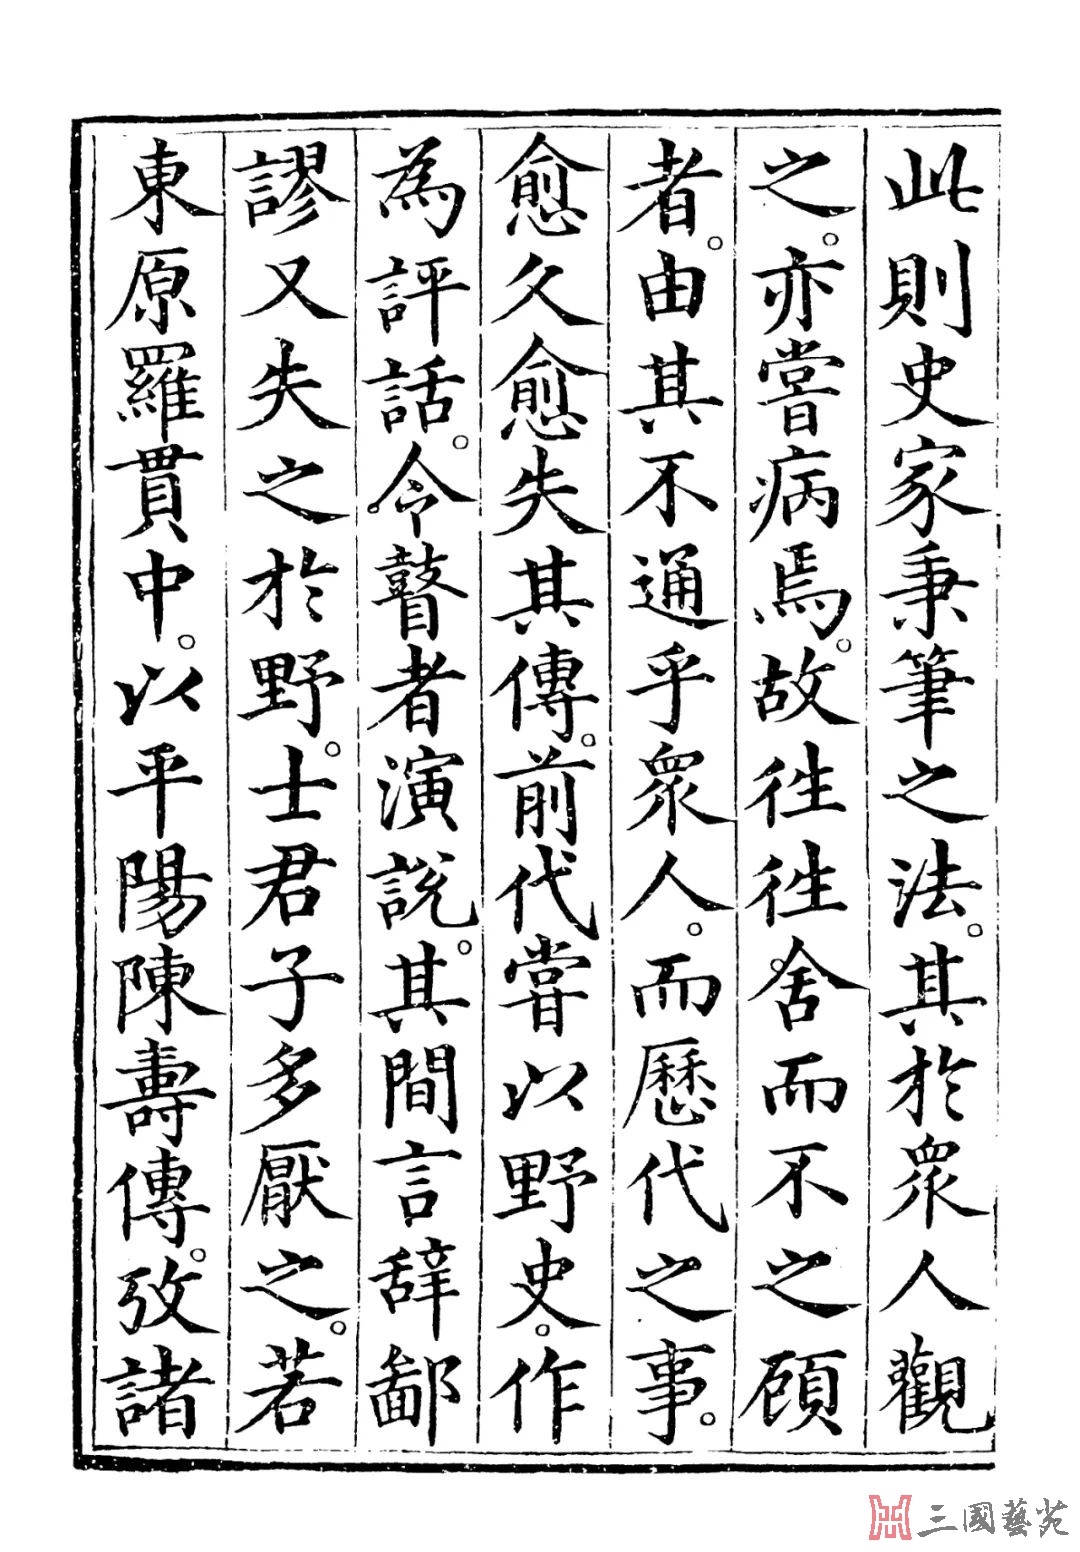 此則史家秉筆之法。其於衆人觀
之。亦嘗病焉。故徃徃舍而不之顧
者。由其不通乎衆人。而歷代之事。
愈久愈失其傳。前代嘗以野史。作
為評話。令瞽者演說。其間言辭鄙
謬又失之於野。士君子多厭之。若
東原羅貫中。以平陽陳壽傳。攷諸
三國藝苑